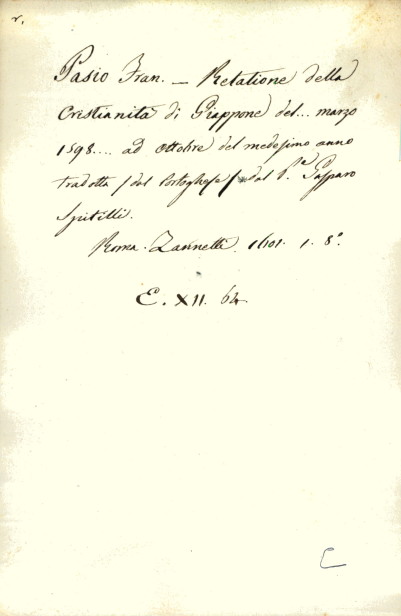 r.
Pasio Fran. — Relatione della
Cristianità di Giappone del... marzo
1598.... ad ottobre del medesimo anno
tradotta / dal Portoghese / dal P.e Gasparo
Spitilli.
Roma. Zannetti. 1601. 1. 8.°
E. XII. 64
C